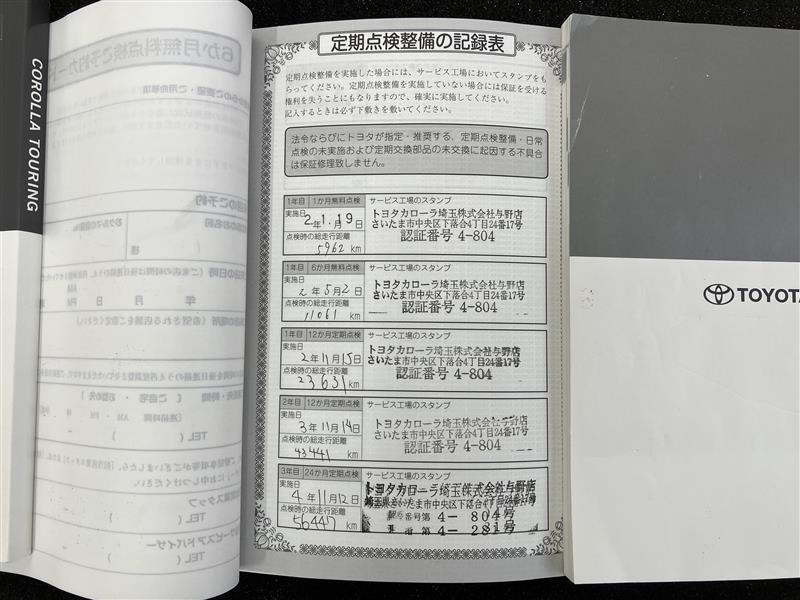 COROLLA TOURING
6か月無料点検ご予約カード
定期点検整備の記録表
定期点検整備を実施した場合には、サービス工場においてスタンプをも
らってください。定期点検整備を実施していない場合には保証を受ける
権利を失うことにもなりますので、確実に実施してください。
記入するときは必ず下敷きを敷いてください。
法令ならびにトヨタが指定・推奨する、定期点検整備・日常
点検の未実施および定期交換部品の未交換に起因する不具合
は保証修理致しません。
1年目 1か月無料点検 サービス工場のスタンプ
実施日
2年1月19日
点検時の総走行距離
5962 km
トヨタカローラ埼玉株式会社与野店
さいたま市中央区下落合4丁目24番17号
認証番号 4-804
1年目 6か月無料点検 サービス工場のスタンプ
実施日
2年5月2日
点検時の総走行距離
11061 km
トヨタカローラ埼玉株式会社与野店
さいたま市中央区下落合4丁目24番17号
認証番号 4-804
1年目 12か月定期点検 サービス工場のスタンプ
実施日
2年11月15日
点検時の総走行距離
23631 km
トヨタカローラ埼玉株式会社与野店
さいたま市中央区下落合4丁目24番17号
認証番号 4-804
2年目 12か月定期点検 サービス工場のスタンプ
実施日
3年11月14日
点検時の総走行距離
43441 km
トヨタカローラ埼玉株式会社与野店
さいたま市中央区下落合4丁目24番17号
認証番号 4-804
3年目 24か月定期点検 サービス工場のスタンプ
実施日
4年11月12日
点検時の総走行距離
56447 km
トヨタカローラ埼玉株式会社与野店
埼玉県さいたま市中央区下落合4丁目24番17号
番号第 4- 804号
番第 4- 281号
TOYOTA